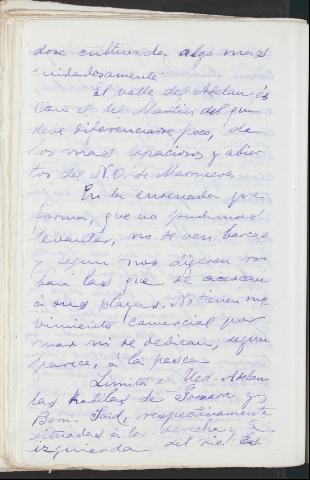 dose cultivada algo mas
cuidadosamente
El valle del Adelau es
con el del Martin del que
debe diferenciarse poco, de
los mas espaciosos y abier
tos del N.O. de Marruecos
En la ensenada que
forma, que no pudimos
levantar, no se ven barcas
y segun nos digeron ro
ban las que se acercan
á sus playas. No tienen mo
vimiento comercial por
mar ni se dedican, segun
parece, á la pesca
Limita el Ued-Adelau
las kabilas de Gomara y
Beni-Said, respectivamente
situadas á la derecha y á
izquierda del rio. Es